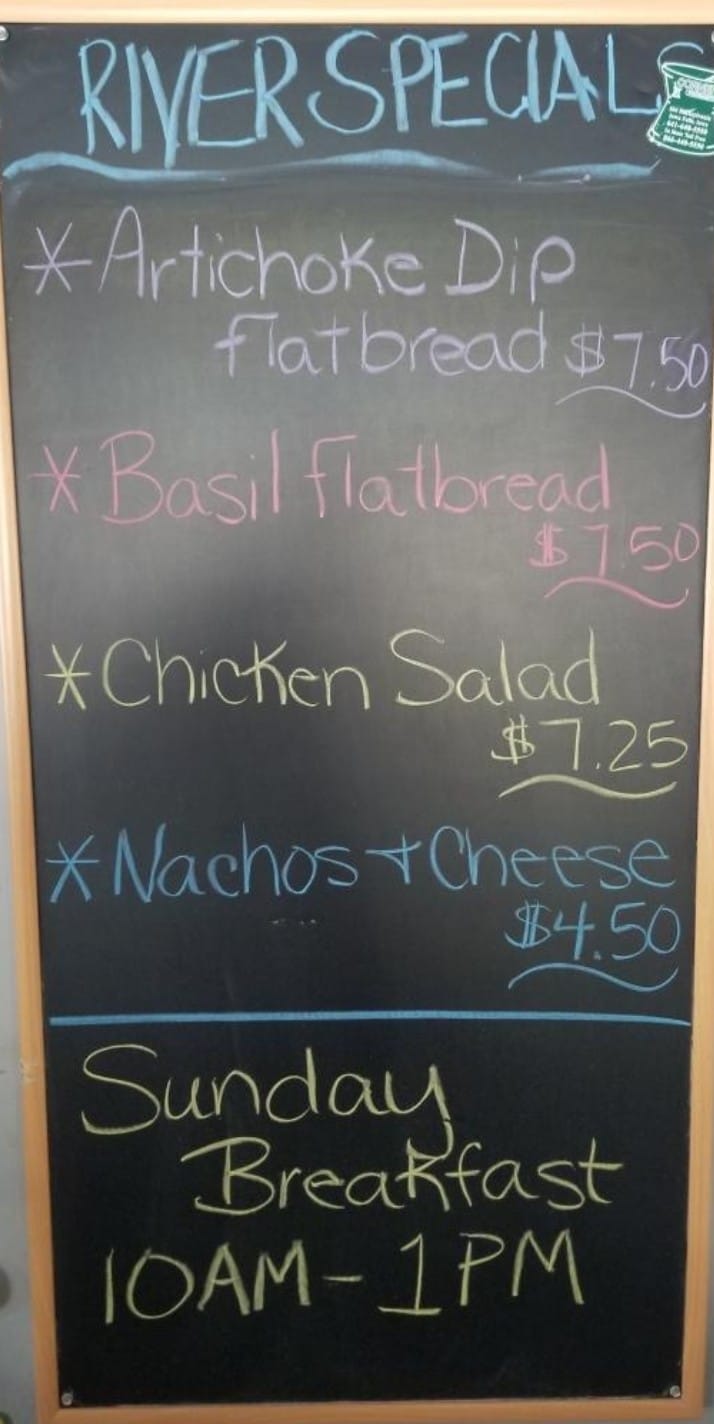 RIVER SPECIALS
* Artichoke Dip
flatbread $7.50
* Basil flatbread
$7.50
* Chicken Salad
$7.25
* Nachos + Cheese
$4.50
Sunday
Breakfast
10AM - 1PM